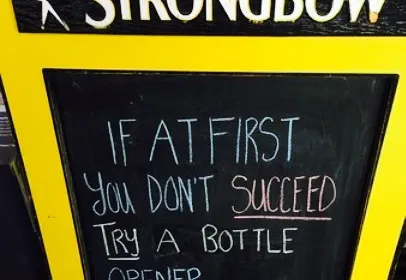 STRONGBOW
IF AT FIRST
YOU DON'T SUCCEED
TRY A BOTTLE
OPENER